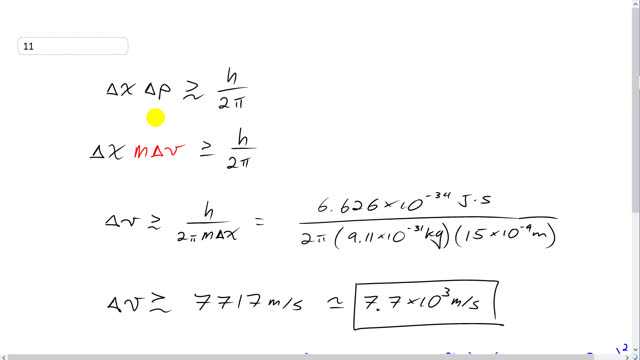 11
Δx Δp ≳ h/2π
Δx mΔv ≥ h/2π
Δv ≳ h/(2π mΔx) = 6.626×10⁻³⁴ J·s / 2π(9.11×10⁻³¹kg)(15×10⁻⁹m)
Δv ≳ 7717 m/s ≃ 7.7×10³ m/s